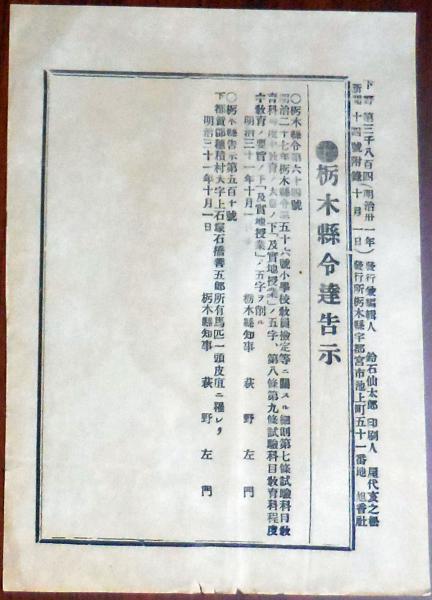 下野新聞第三千八百四十四號附錄(明治卅一年十月一日)發行兼編輯人 鈴石仙太郎 印刷人 屋代亥之
發行所栃木縣宇都宮市池上町五十一番地 旭香社
●栃木縣令達告示
〇栃木縣令第六十四號
明治二十七年栃木縣令第五十六號小學校敎員檢定等ニ關スル細則第七條試驗科目敎
育科程度中敎育ノ大意ノ下「及實地授業」ノ五字、第八條第九條試驗科目敎育科程度
中敎育ノ要旨ノ下「及實地授業」ノ五字ヲ削ル
明治三十一年十月一日 栃木縣知事 萩野左門
〇栃木縣告示第五百十號
下都賀郡穗積村大字上石塚石橋善五郎所有馬匹一頭皮疽ニ罹レリ
明治三十一年十月一日 栃木縣知事 萩野左門